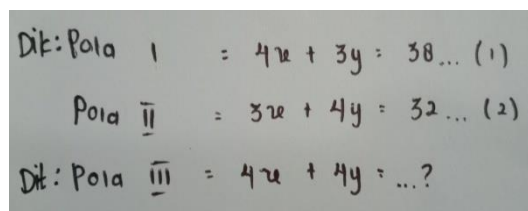 Dik: Pola I = 4x + 3y = 38... (1)
Pola II = 3x + 4y = 32... (2)
Dit: Pola III = 4x + 4y = ...?